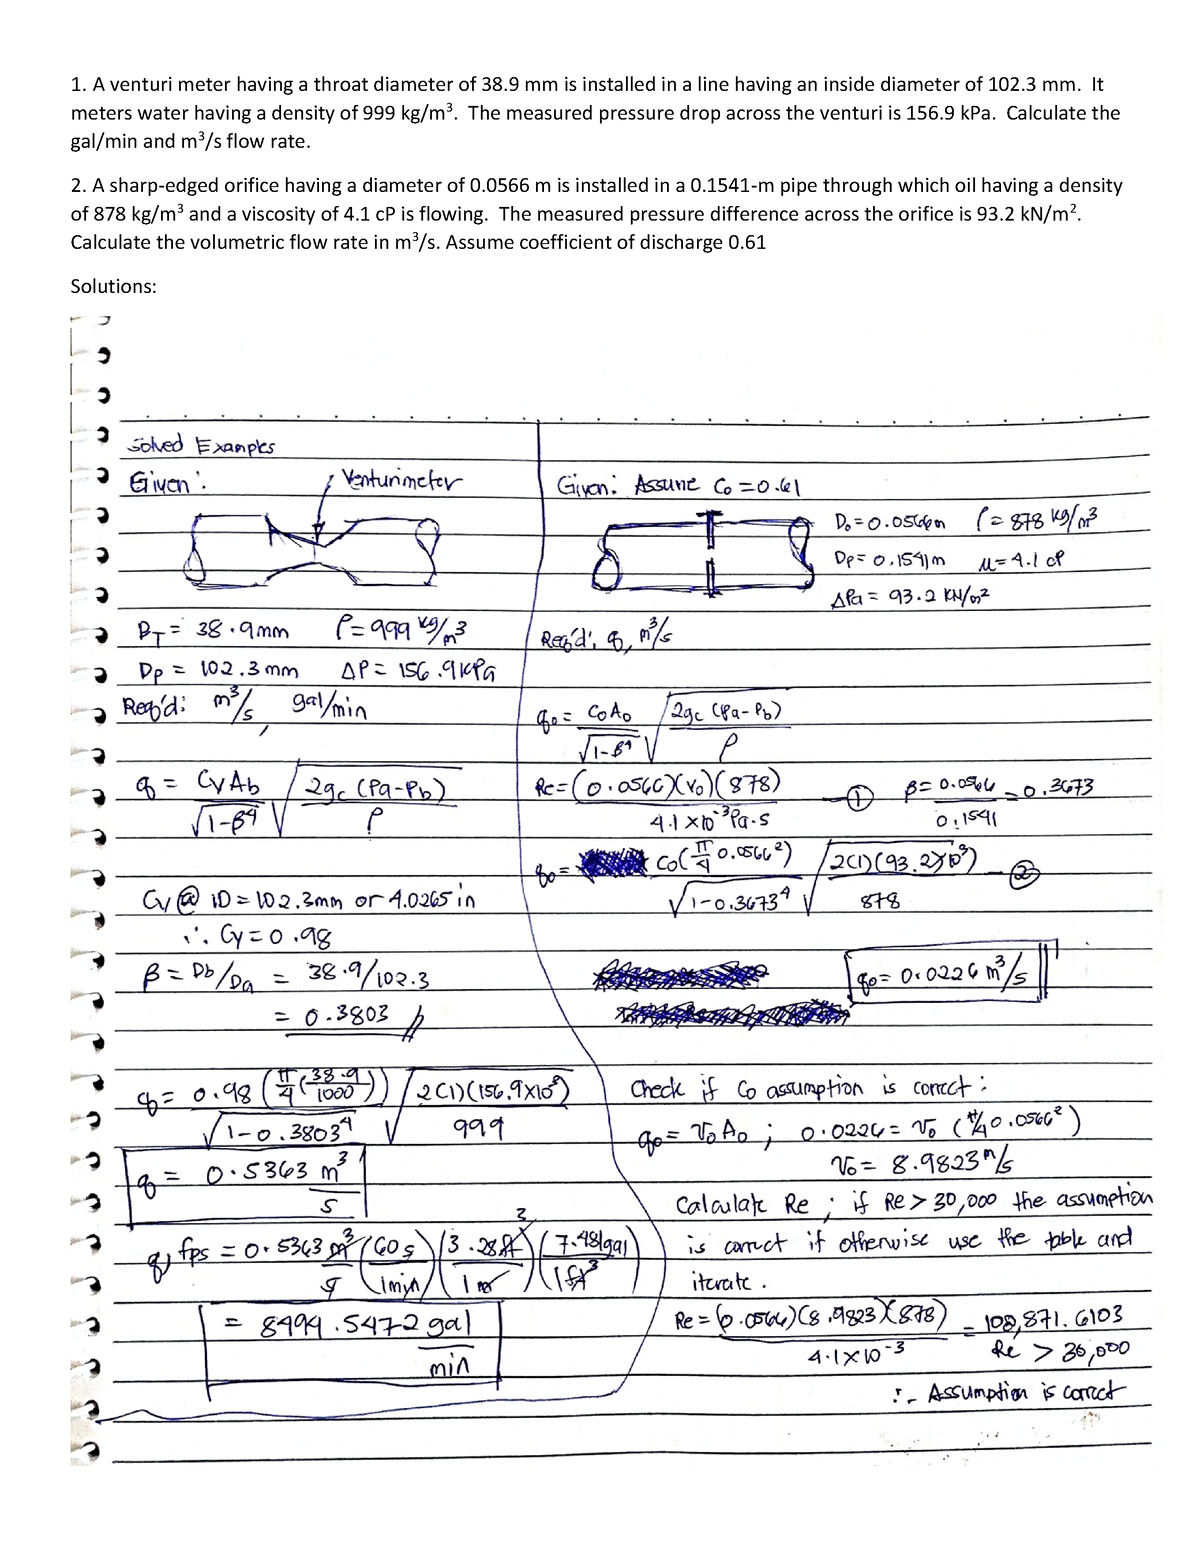 1. A venturi meter having a throat diameter of 38.9 mm is installed in a line having an inside diameter of 102.3 mm. It
meters water having a density of 999 kg/m³. The measured pressure drop across the venturi is 156.9 kPa. Calculate the
gal/min and m³/s flow rate.
2. A sharp-edged orifice having a diameter of 0.0566 m is installed in a 0.1541-m pipe through which oil having a density
of 878 kg/m³ and a viscosity of 4.1 cP is flowing. The measured pressure difference across the orifice is 93.2 kN/m².
Calculate the volumetric flow rate in m³/s. Assume coefficient of discharge 0.61
Solutions:
Solved Examples
Given:
Venturimeter
D_T = 38.9mm ρ = 999 kg/m³
D_p = 102.3mm ΔP = 156.9 kPa
Req'd: m³/s, gal/min
q = CvAb/√(1-β⁴) √(2gc (Pa-Pb)/ρ)
Cv @ ID = 102.3mm or 4.0265 in
∴ Cv = 0.98
β = Db/Da = 38.9/102.3
= 0.3803
q = 0.98 (π/4 (38.9/1000))/√(1-0.3803⁴) √(2(1)(156.9x10³)/999)
q = 0.5363 m³/s
q, fps = 0.5363 m³/s (60s/1min)(3.28ft/1m)³(7.481gal/1ft³)
= 8494.5472 gal/min
Given: Assume Co = 0.61
Do = 0.0566m ρ = 878 kg/m³
Dp = 0.1541m μ = 4.1 cP
ΔPa = 93.2 KN/m²
Req'd: q, m³/s
qo = CoAo/√(1-β⁴) √(2gc (Pa-Pb)/ρ)
Re = (0.0566)(vo)(878)/4.1x10⁻³Pa·s - ① β = 0.0566/0.1541 = 0.3673
qo = Co(π/4 0.0566²)/√(1-0.3673⁴) √(2(1)(93.2x10³)/878) - ②
qo = 0.0226 m³/s
Check if Co assumption is correct:
qo = voAo ; 0.0226 = vo (π/4 0.0566²)
vo = 8.9823 m/s
Calculate Re ; if Re > 30,000 the assumption
is correct if otherwise use the table and
iterate.
Re = (0.0566)(8.9823)(878)/4.1x10⁻³ = 108,871.6103
Re > 30,000
∴ Assumption is correct